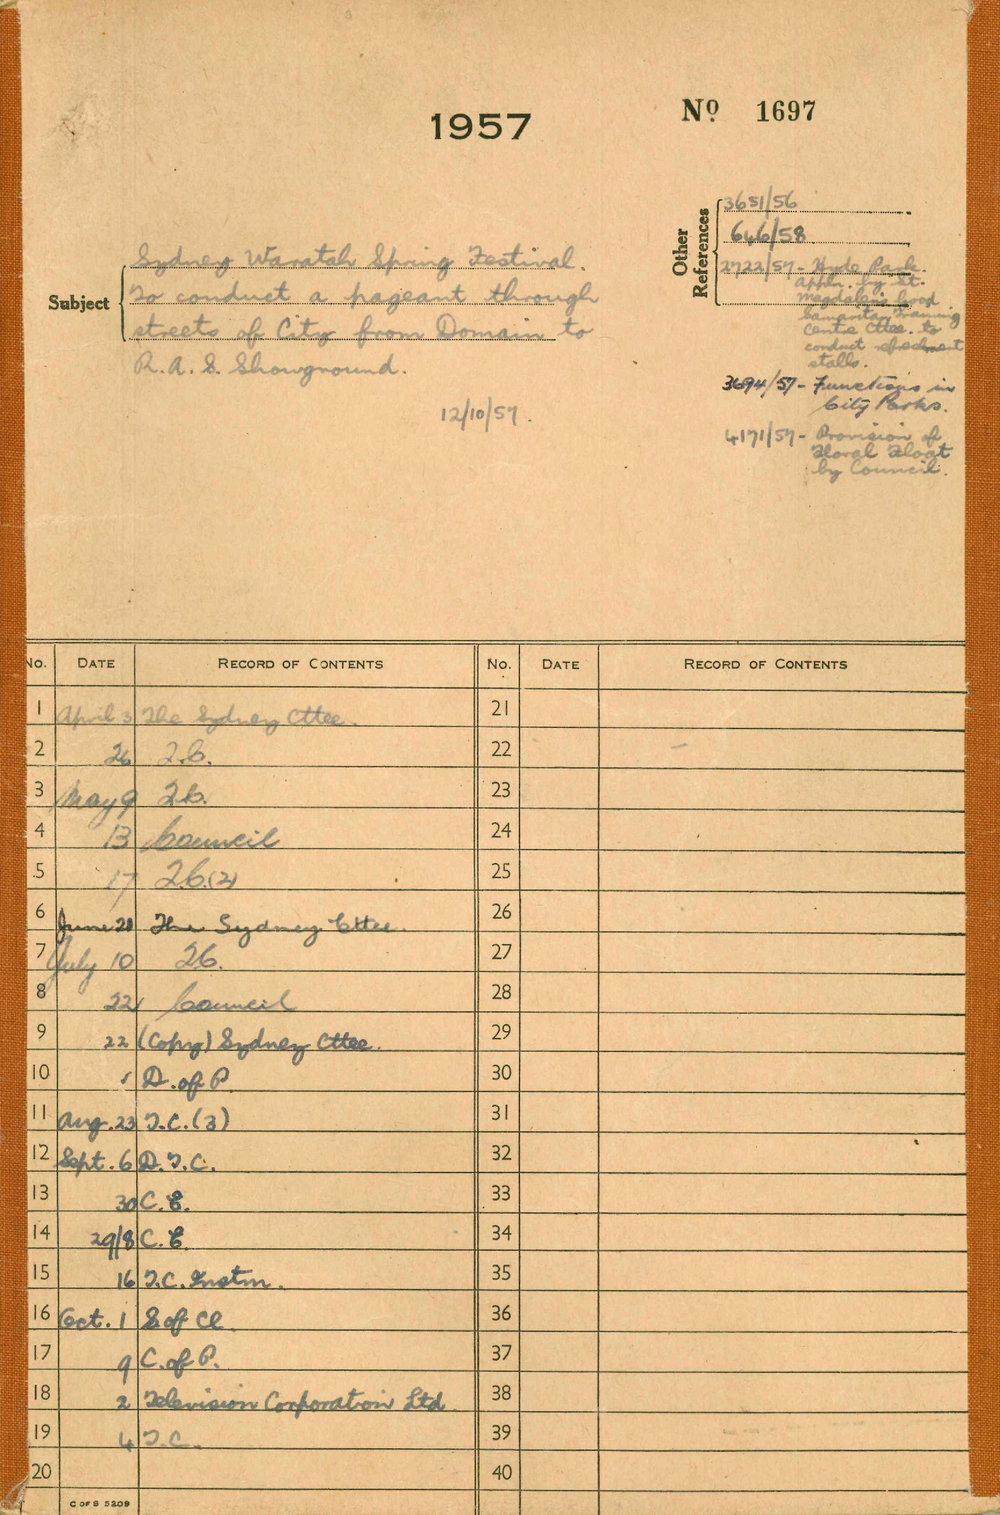 1957
No 1697
Other References
3651/56
646/58
2722/57 - Hyde Park.
Appln. by St.
Magdalen's Good
Samaritan Training
Centre Cttee. to
conduct refreshment
stalls.
3694/57 - Functions in
City Parks.
4171/57 - Provision of
Floral Float
by Council.
Subject
Sydney Waratah Spring Festival.
To conduct a pageant through
streets of City from Domain to
R.A.S. Showground.
12/10/57.
No. DATE RECORD OF CONTENTS No. DATE RECORD OF CONTENTS
1 April 3 The Sydney Cttee. 21
2 26 T.C. 22
3 May 9 T.C. 23
4 13 Council 24
5 17 T.C. (2) 25
6 June 28 The Sydney Cttee. 26
7 July 10 T.C. 27
8 22 Council 28
9 22 (Copy) Sydney Cttee. 29
10 D. of P. 30
11 Aug. 23 T.C. (3) 31
12 Sept. 6 D.T.C. 32
13 30 C.E. 33
14 29/8 C.E. 34
15 16 T.C. Instn. 35
16 Oct. 1 S of Cl. 36
17 9 C. of P. 37
18 2 Television Corporation Ltd. 38
19 4 T.C. 39
20 40
C OF S 5209